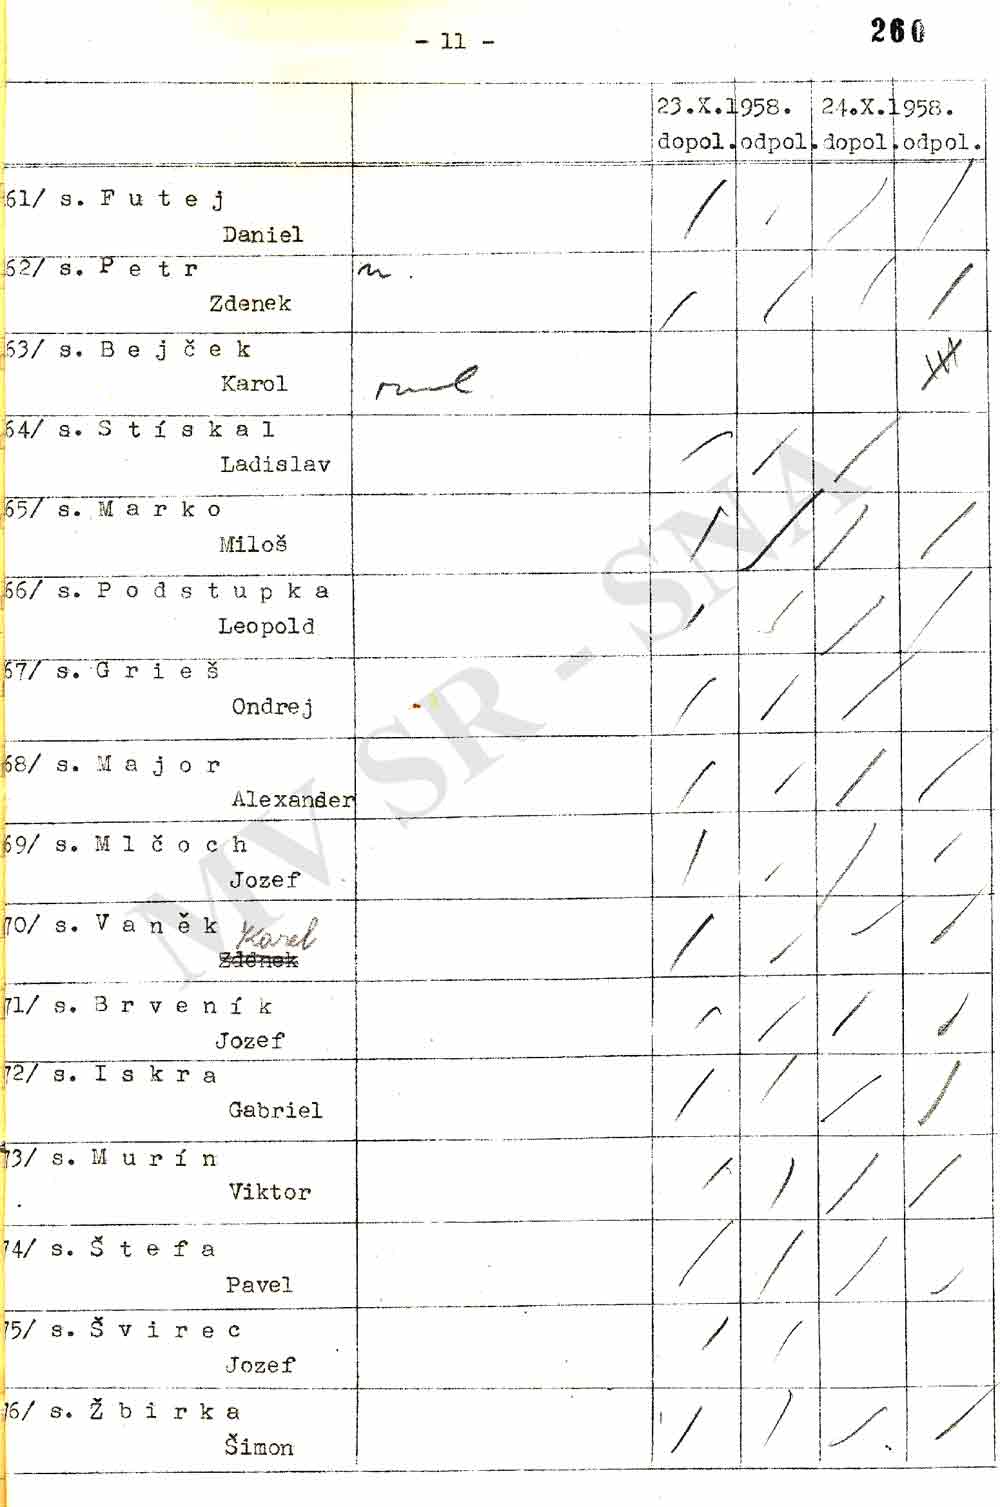 - 11 -
260
23.X.1958. 24.X.1958.
dopol. odpol. dopol. odpol.
61/ s. F u t e j
Daniel
62/ s. P e t r
Zdenek
63/ s. B e j č e k
Karol
64/ s. S t í s k a l
Ladislav
65/ s. M a r k o
Miloš
66/ s. P o d s t u p k a
Leopold
67/ s. G r i e š
Ondrej
68/ s. M a j o r
Alexander
69/ s. M l č o c h
Jozef
70/ s. V a n ě k
Karel
Zdenek
71/ s. B r v e n í k
Jozef
72/ s. I s k r a
Gabriel
73/ s. M u r í n
Viktor
74/ s. Š t e f a
Pavel
75/ s. Š v i r e c
Jozef
76/ s. Ž b i r k a
Šimon
MV SR - SNA